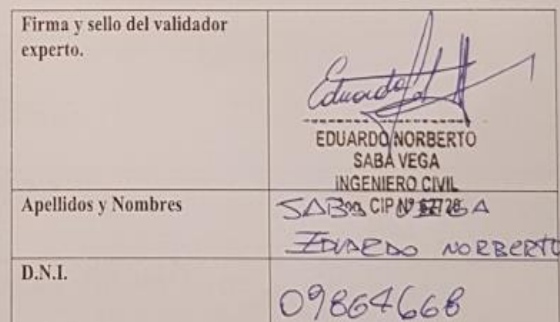 Firma y sello del validador
experto.
Eduardo
EDUARDO NORBERTO
SABA VEGA
INGENIERO CIVIL
CIP Nº
Apellidos y Nombres
SABA VEGA
EDUARDO NORBERTO
D.N.I.
09864668